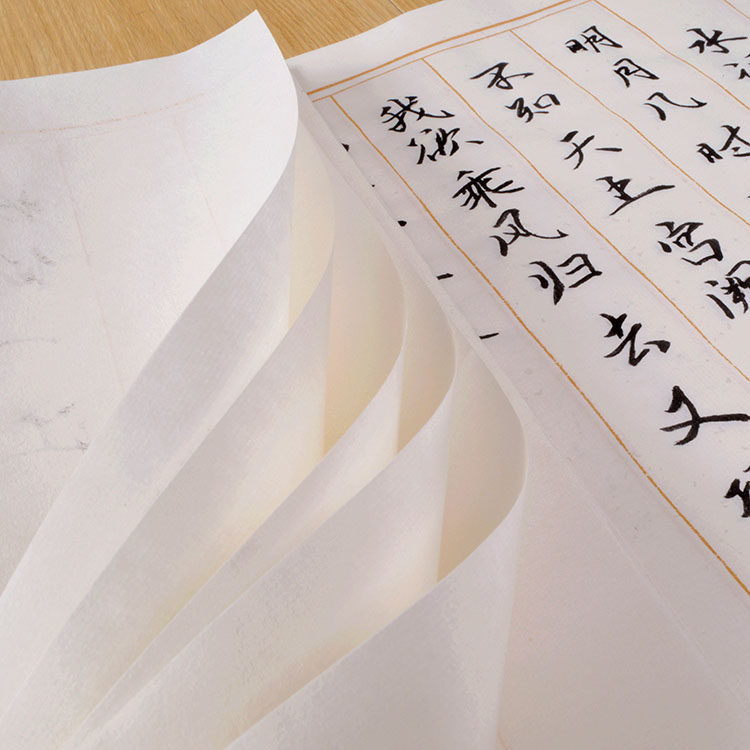 水
明月几时
不知天上宫阙
我欲乘风归去又